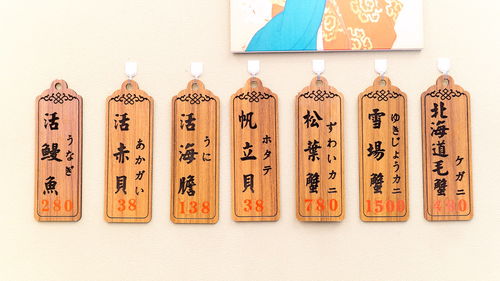 活鰻魚
うなぎ
280
活赤貝
あかがい
38
活海膽
うに
138
帆立貝
ホタテ
38
松葉蟹
ずわいカニ
780
雪場蟹
ゆきじょうカニ
1500
北海道毛蟹
ケガニ